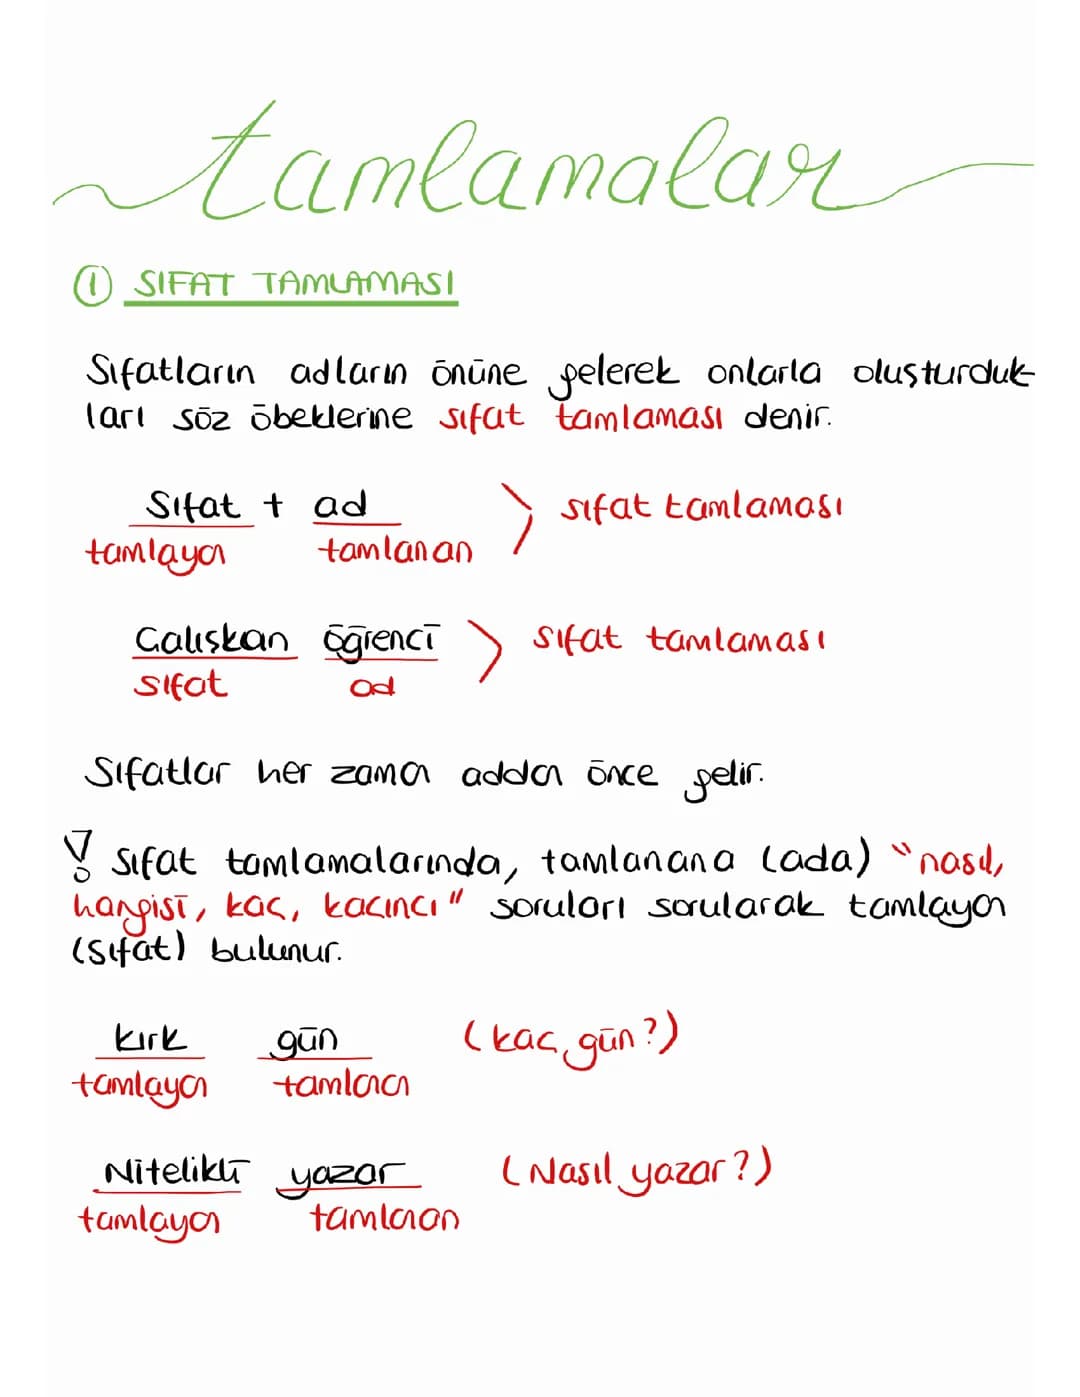 tamlamalar
① SIFAT TAMLAMASI
Sıfatların adların önüne gelerek onlarla oluşturduk-
ları söz öbeklerine sıfat tamlaması denir.
Sıfat + ad > sıfat tamlaması
tamlayan tamlanan
Çalışkan öğrenci > sıfat tamlaması
sıfat ad
Sıfatlar her zaman addan önce gelir.
! Sıfat tamlamalarında, tamlanana (ada) "nasıl,
hangisi, kaç, kaçıncı" soruları sorularak tamlayan
(sıfat) bulunur.
kırk gün (kaç gün?)
tamlayan tamlanan
Nitelikli yazar (Nasıl yazar?)
tamlayan tamlanan